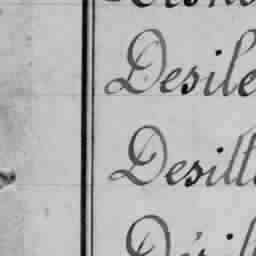 Desile
Desill
Désil